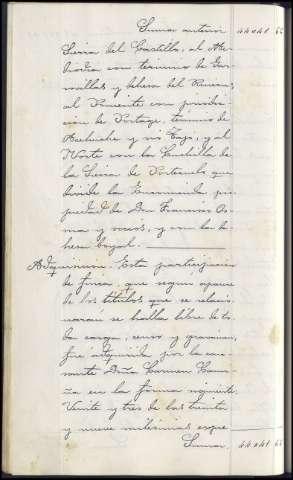 Suma anterior 44.041 66
Sierra del Castillo, al Me-
diodía con termino de Gar-
rovillas y dehesa del Rincon;
al Poniente con jurisdic-
cion de Portaje, término de
Acehuche y rio Tajo, y al
Norte con la Cuchilla de
la Sierra de Portezuelo que
divide la Encomienda pro-
piedad de Don Francisco
ma y socios, y con la de-
hesa boyal.
Adquirieron: Esta participacion
de finca, que segun aparece
de los títulos que se relacio-
narán se halla libre de to-
da carga, censo y gravamen,
fué adquirida por la cau-
sante Doña Carmen
ña en la forma siguiente:
Veinte y tres de las treinta
y nueve milésimas espre-
Suma. 44.041 66